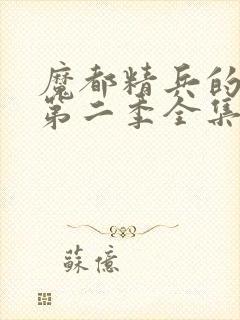 魔都精兵的
第二季全集
蘇億